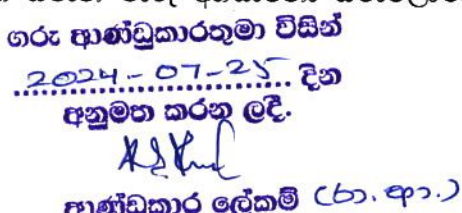 ගරු ආණ්ඩුකාරතුමා විසින්
2024-07-25 දින
අනුමත කරන ලදී.
ආණ්ඩුකාර ලේකම් (වැ. ආ.)